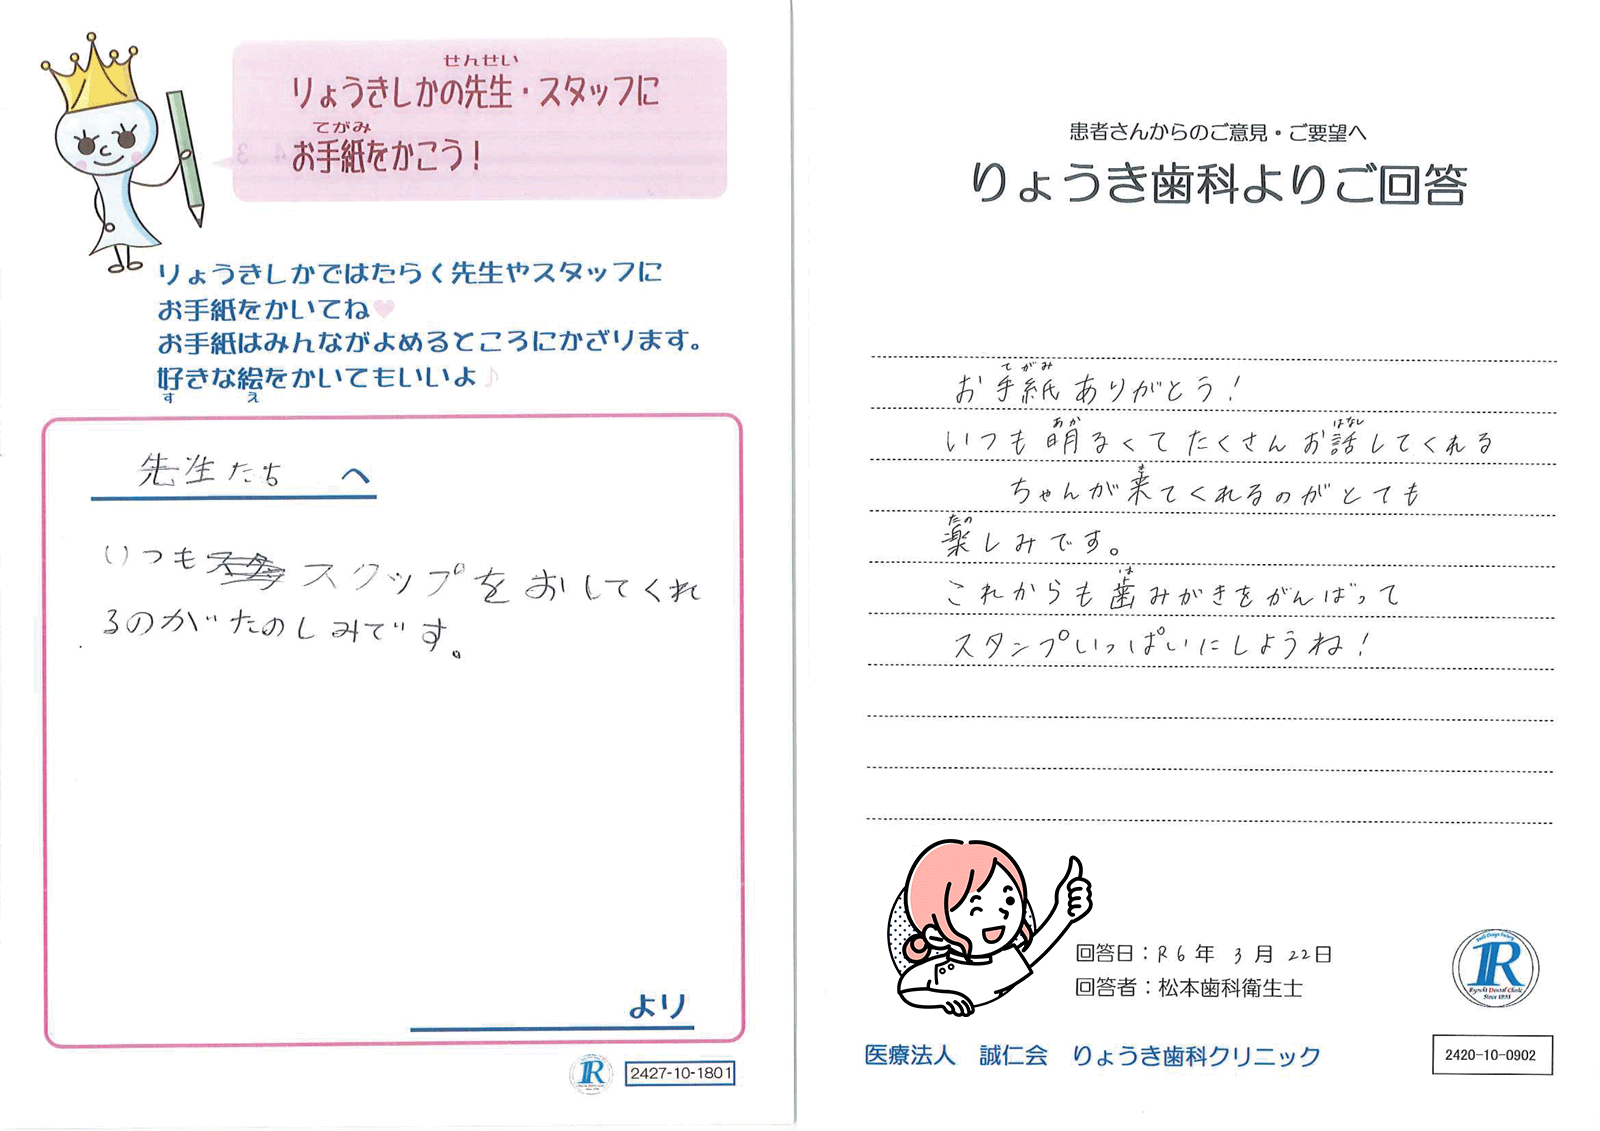 せんせい
りょうきしかの先生・スタッフに
てがみ
お手紙をかこう！
りょうきしかではたらく先生やスタッフに
お手紙をかいてね
お手紙はみんながよめるところにかざります。
好きな絵をかいてもいいよ♪
す え
先生たち へ
いつも スタップをおしてくれ
るのがたのしみです。
より
2427-10-1801
患者さんからのご意見・ご要望へ
りょうき歯科よりご回答
てがみ
お手紙ありがとう！
あか はなし
いつも明るくてたくさんお話してくれる
き
ちゃんが来てくれるのがとても
たの
楽しみです。
は
これからも歯みがきをがんばって
スタンプいっぱいにしようね！
回答日：R6年 3月 22日
回答者：松本歯科衛生士
R
Ryouki Dental Clinic
Since 1993
医療法人 誠仁会 りょうき歯科クリニック
2420-10-0902